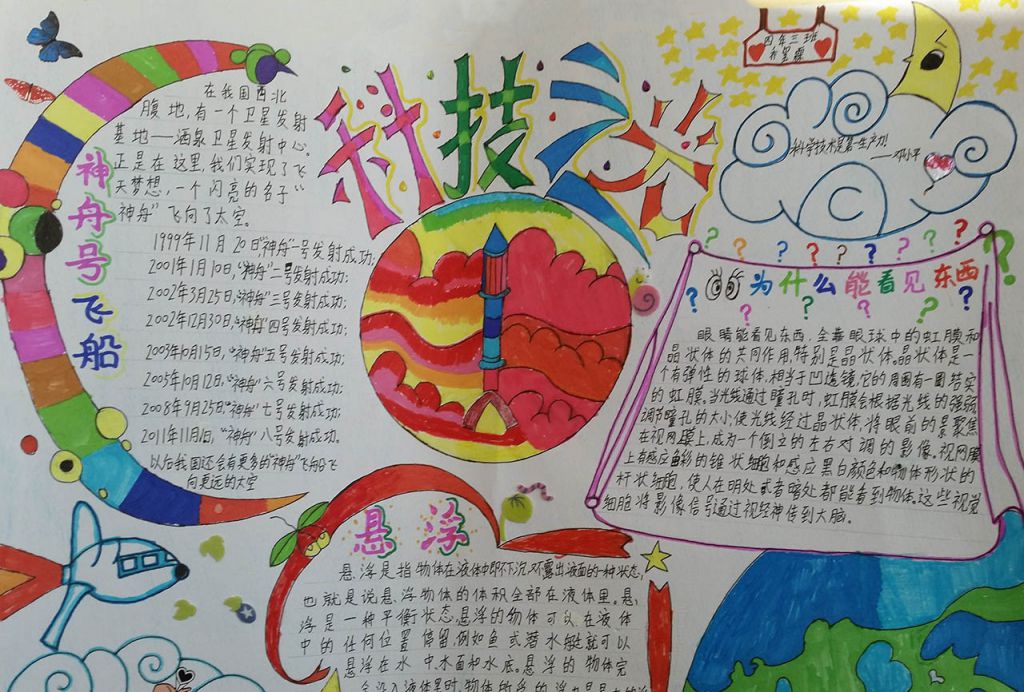 科技之光
四年三班
科学技术是第一生产力!
——邓小平
神舟号飞船
在我国西北
腹地,有一个卫星发射
基地——酒泉卫星发射中心。
正是在这里,我们实现了飞
天梦想,一个闪亮的名子“
神舟”飞向了太空。
1999年11月20日“神舟”一号发射成功;
2001年1月10日,“神舟”二号发射成功;
2002年3月25日,“神舟”三号发射成功;
2002年12月30日,“神舟”四号发射成功;
2003年10月15日,“神舟”五号发射成功;
2005年10月12日,“神舟”六号发射成功;
2008年9月25日,“神舟”七号发射成功;
2011年11月1日,“神舟”八号发射成功。
以后我国还会有更多的“神舟”飞船飞
向更远的太空
为什么能看见东西
眼睛能看见东西,全靠眼球中的虹膜和
晶状体的共同作用特别是晶状体。晶状体是一
个有弹性的球体,相当于凹透镜,它的周围有一圈结实
的虹膜。当光线通过瞳孔时,虹膜会根据光线的强弱
调节瞳孔的大小,使光线经过晶状体,将眼前的景聚焦
在视网膜上,成为一个倒立的左右对调的影像。视网膜
上有感应色彩的锥状细胞和感应黑白颜色和物体形状的
杆状细胞,使人在明处或者暗处都能看到物体。这些视觉
细胞将影像信号通过视经神传到大脑。
悬浮
悬浮是指物体在液体中即不下沉,又不露出液面的一种状态,
也就是说悬浮物体的体积全部在液体里。悬
浮是一种平衡状态,悬浮的物体可以在液体
中的任何位置停留,例如鱼或潜水艇就可以
悬浮在水中水面和水底。悬浮的物体完
全没入液体里时,物体所受的浮力